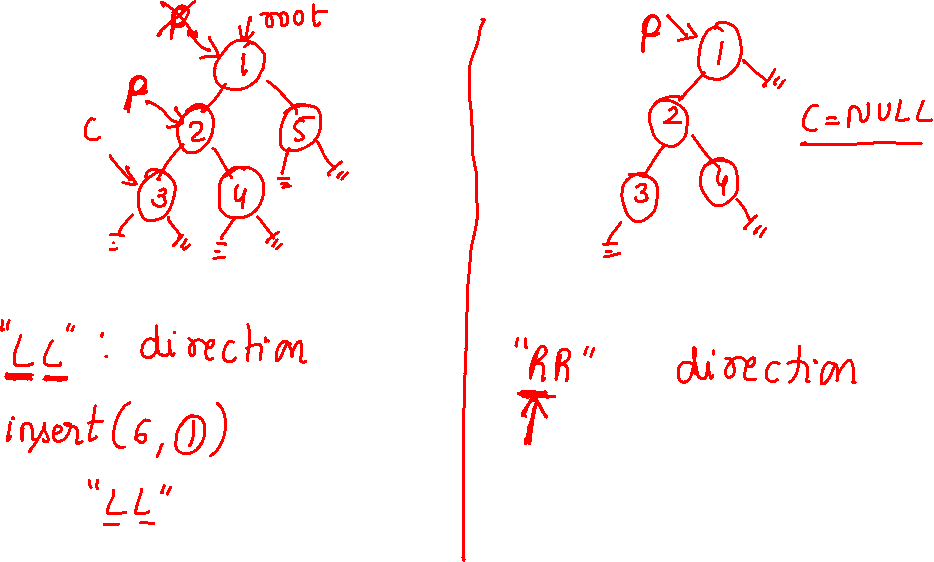 P root
1
P
C 2 5
3 4
"LL" : direction
insert(6, 1)
"LL"
P 1
2 C=NULL
3 4
"RR" direction